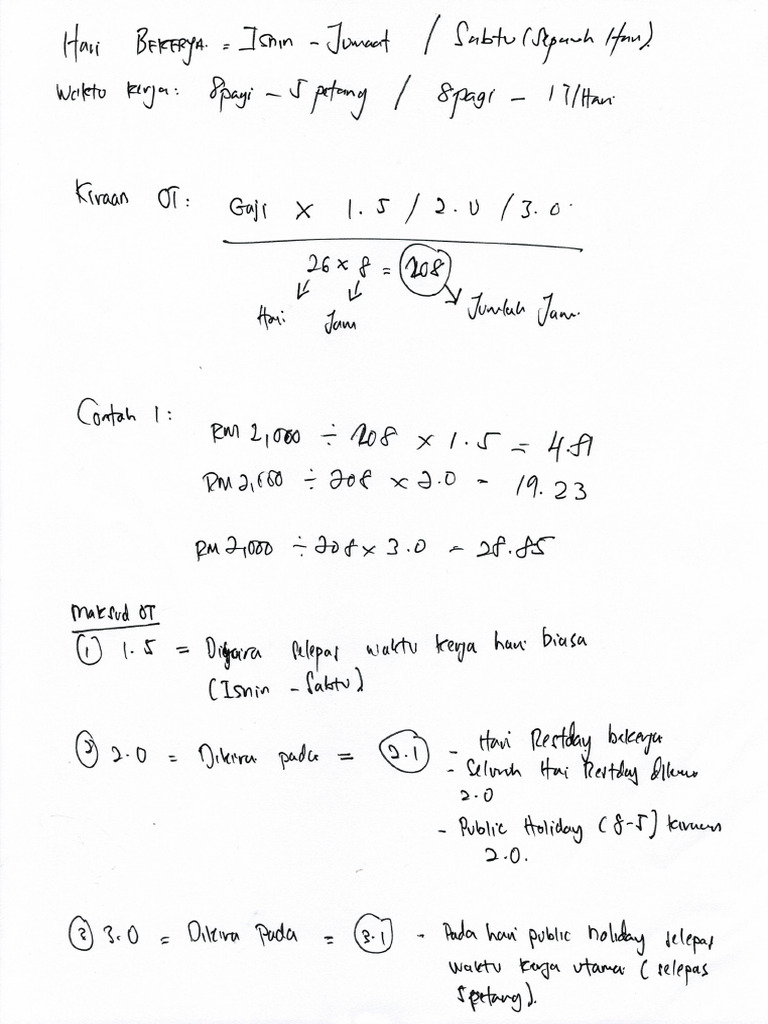 Hari BEKERJA = Isnin - Jumaat / Sabtu (Separuh Hari)
Waktu kerja: 8pagi - 5 petang / 8pagi - 17/Hari
Kiraan OT: Gaji x 1.5 / 2.0 / 3.0
26 x 8 = 208
Hari Jam Jumlah Jam
Contoh 1:
RM 2,000 ÷ 208 x 1.5 = 4.81
RM 2,000 ÷ 208 x 2.0 = 19.23
RM 2,000 ÷ 208 x 3.0 = 28.85
Maksud OT
① 1.5 = Dikira selepas waktu kerja hari biasa
(Isnin - Sabtu)
② 2.0 = Dikira pada = 2.1 - Hari Restday bekerja
- Seluruh Hari Restday dikira
2.0
- Public Holiday (8-5) kiraan
2.0.
③ 3.0 = Dikira Pada = 3.1 - Pada hari public holiday selepas
waktu kerja utama (selepas
5petang).